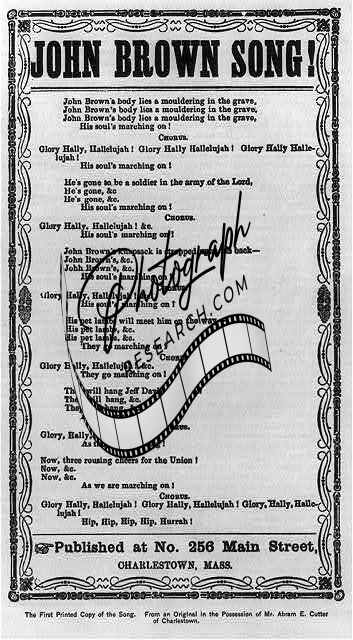 JOHN BROWN SONG!
John Brown's body lies a mouldering in the grave,
John Brown's body lies a mouldering in the grave,
John Brown's body lies a mouldering in the grave,
His soul's marching on!
CHORUS.
Glory Hally, Hallelujah! Glory Hally Hallelujah! Glory Hally Halle-
lujah!
His soul's marching on!
He's gone to be a soldier in the army of the Lord,
He's gone, &c
He's gone, &c.
His soul's marching on!
CHORUS.
Glory Hally, Hallelujah! &c.
His soul's marching on!
John Brown's knapsack is strapped back—
John Brown's, &c.
John Brown's, &c.
His soul's marching on!
Glory Hally, Hallelujah!
His soul's marching on!
His pet lambs will meet him on the way
His pet lambs, &c.
His pet lambs, &c.
They go marching on!
CHORUS
Glory Hally, Hallelujah! &c.
They go marching on!
They will hang Jeff Davis
They will hang, &c.
They will hang, &c.
Glory, Hally,
As
Now, three rousing cheers for the Union!
Now, &c.
Now, &c.
As we are marching on!
CHORUS.
Glory Hally, Hallelujah! Glory Hally, Hallelujah! Glory, Hally, Halle-
lujah!
Hip, Hip, Hip, Hip, Hurrah!
Published at No. 256 Main Street,
CHARLESTOWN, MASS.
The First Printed Copy of the Song. From an Original in the Possession of Mr. Abram E. Cutter
of Charlestown.
Photograph
RESEARCH.COM